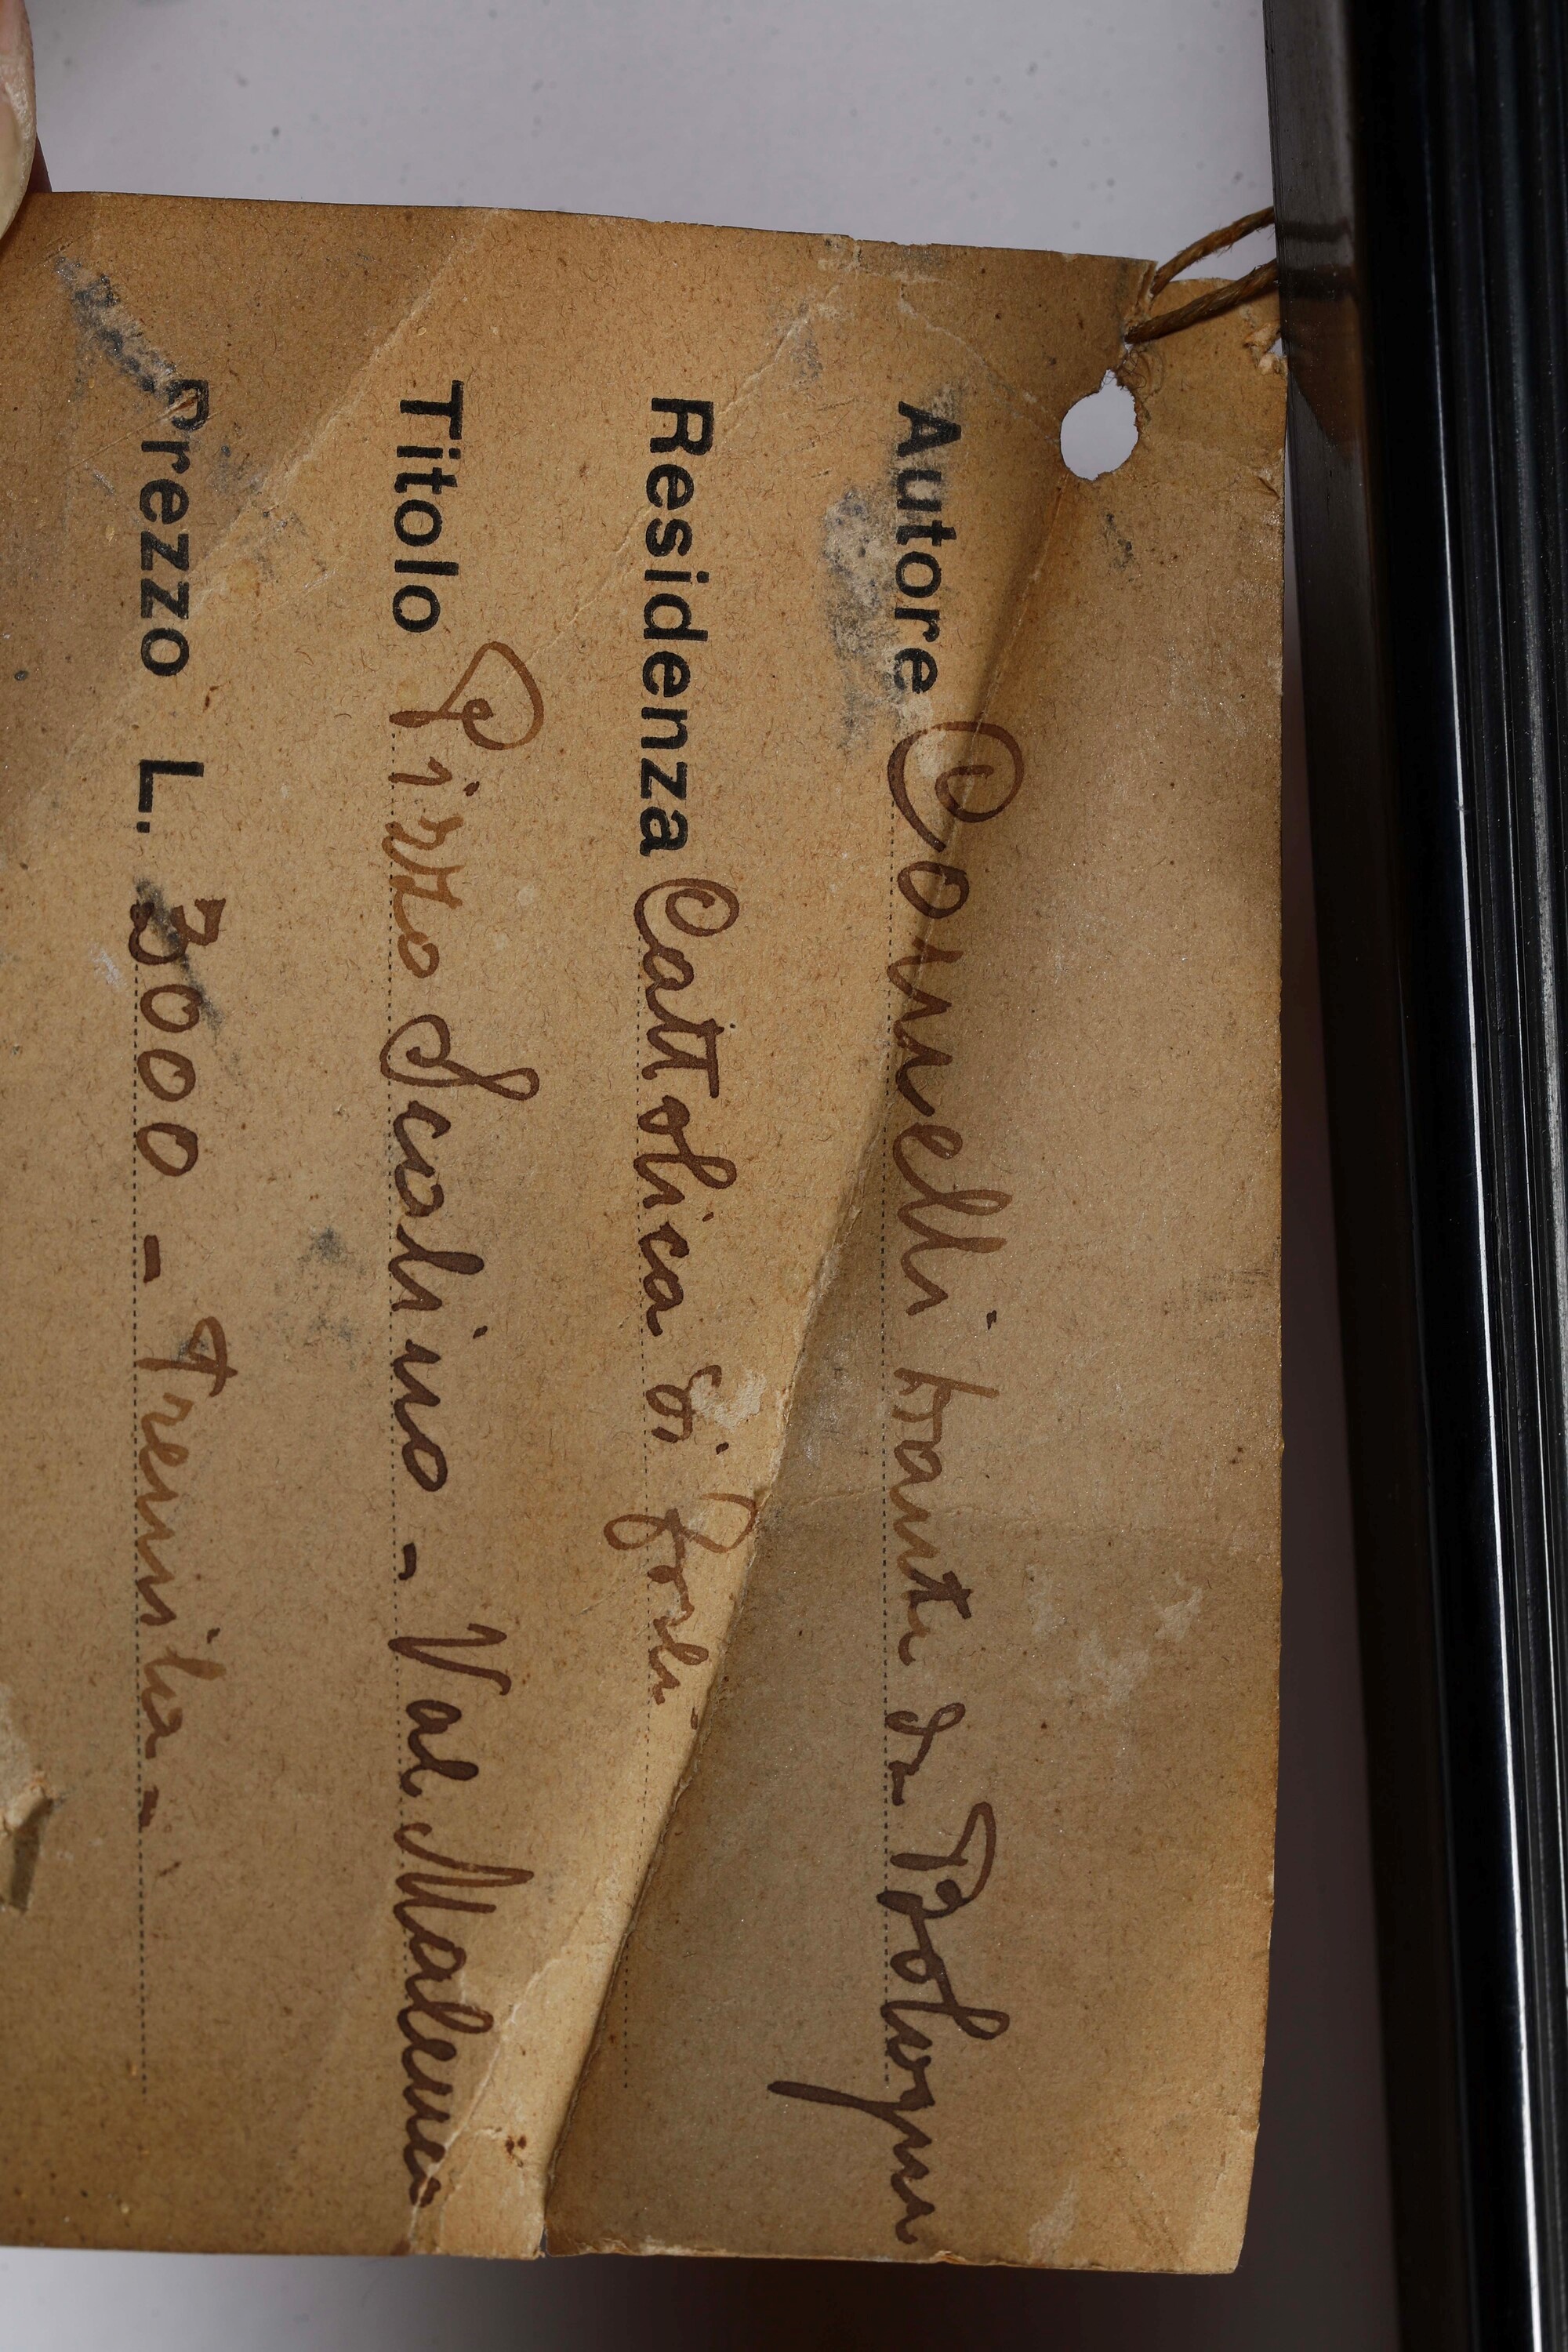 Autore Cornelli Dante da Bologna
Residenza Cattolica di Forlì
Titolo Pizzo Scalino - Val Malenco
Prezzo L. 3000 - Tremila -